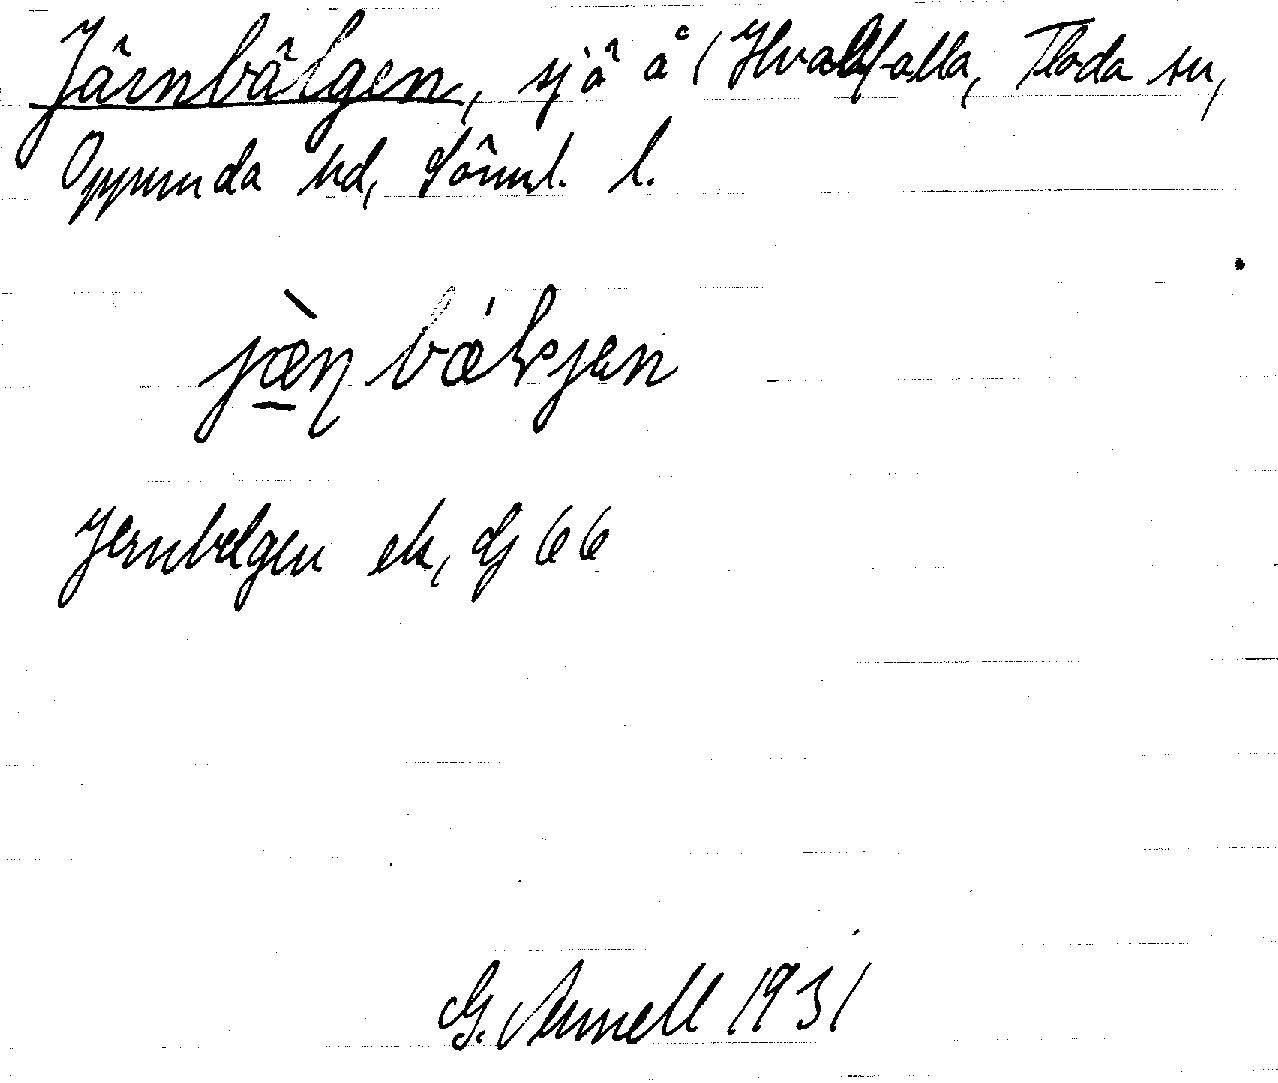 Järnbälgen, sjö å ( Hvalfalla, Floda sn,
Oppunda hd, Söml. l.
jæ̀n bæ̀lsjen
Jernbelgen ek, Gj 66
G. Arnell 1931